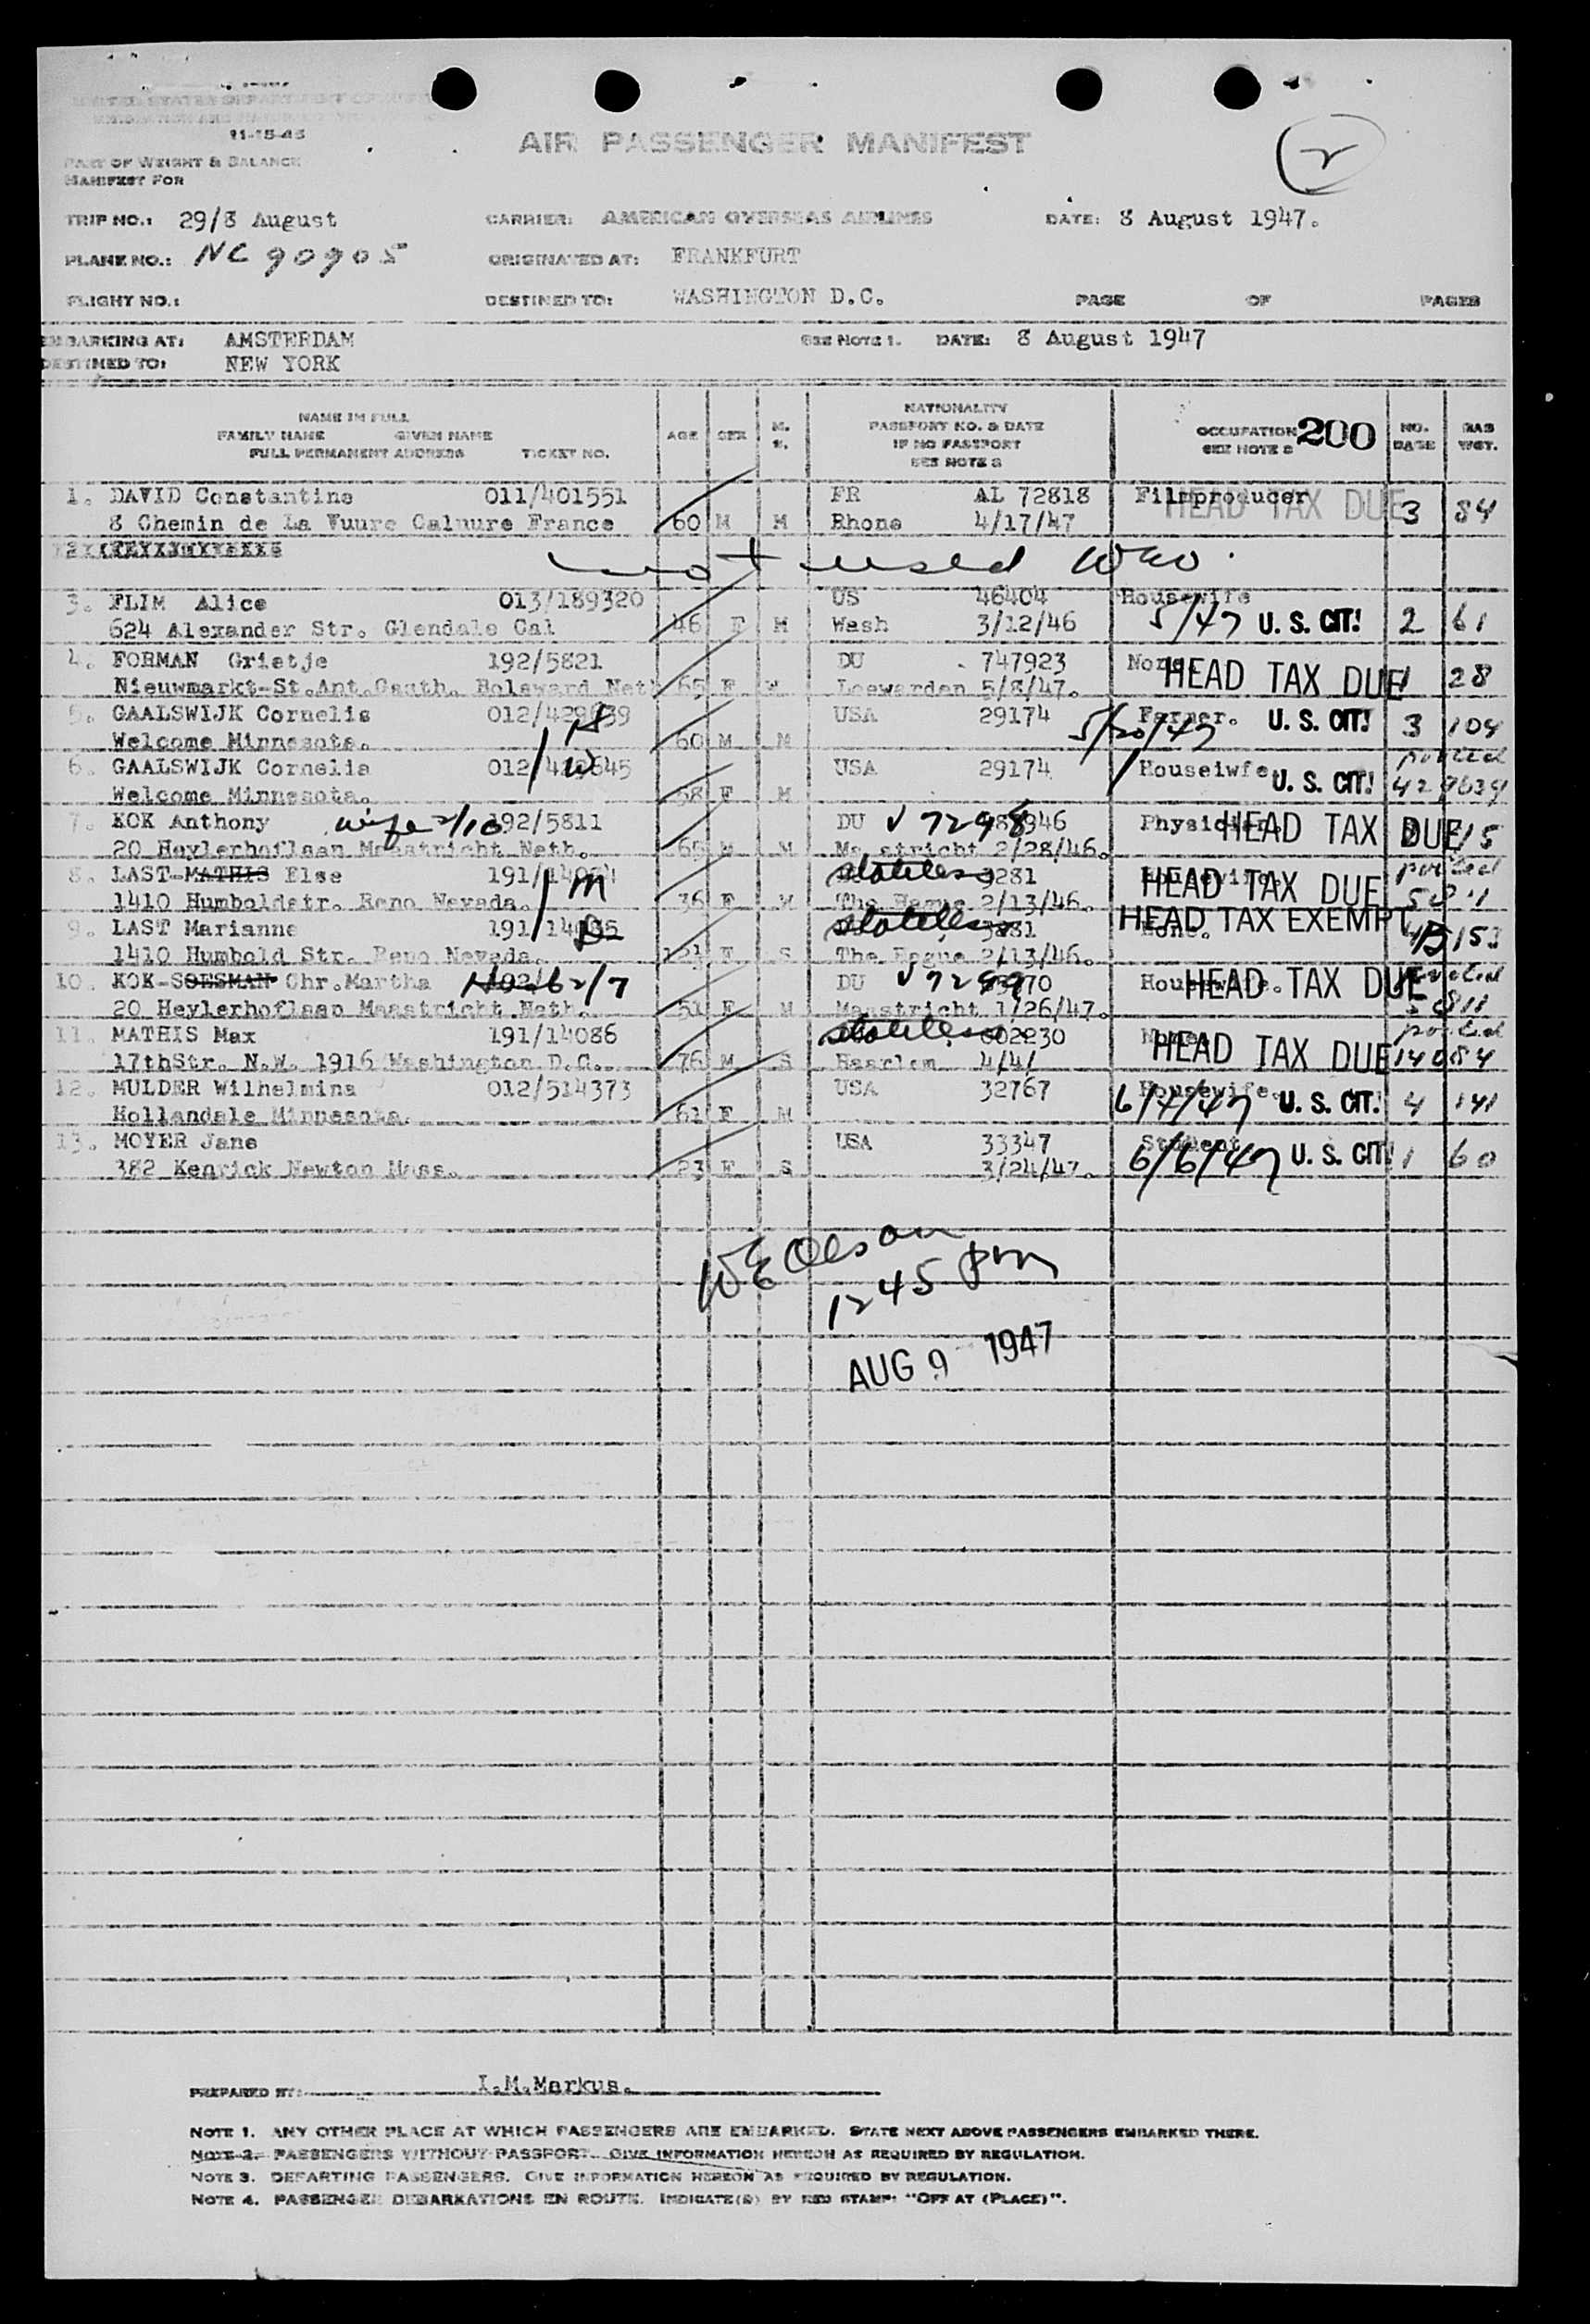 11-15-45
PART OF WEIGHT & BALANCE
MANIFEST FOR
AIR PASSENGER MANIFEST
2
TRIP NO.: 29/8 August CARRIER: AMERICAN OVERSEAS AIRLINES DATE: 8 August 1947.
PLANE NO.: NC 90905 ORIGINATED AT: FRANKFURT
FLIGHT NO.: DESTINED TO: WASHINGTON D.C. PAGE OF PAGES
EMBARKING AT: AMSTERDAM SEE NOTE 1. DATE: 8 August 1947
DESTINED TO: NEW YORK
NAME IN FULL
FAMILY NAME GIVEN NAME
FULL PERMANENT ADDRESS TICKET NO.
AGE SEX M. S.
NATIONALITY
PASSPORT NO. & DATE
IF NO PASSPORT
SEE NOTE 2
OCCUPATION 200
SEE NOTE 3
NO. BAGS
BAG WGT.
1. DAVID Constantine 011/401551 FR AL 72818 Filmproducer HEAD TAX DUE
8 Chemin de La Vuure Caluure France 60 M M Rhone 4/17/47 3 84
not used WEO
3. FLIM Alice 013/189320 US 46404 Housewife
624 Alexander Str. Glendale Cal 46 F M Wash 3/12/46 5/47 U. S. CIT! 2 61
4. FORMAN Grietje 192/5821 DU 747923 None HEAD TAX DUE 1 28
Nieuwmarkt-St.Ant.Gasth. Bolsward Neth 65 F Leewarden 5/8/47.
5. GAALSWIJK Cornelis 012/429639 H USA 29174 Farmer. U. S. CIT! 3 104
Welcome Minnesota. 60 M M 5/20/47
6. GAALSWIJK Cornelia 012/429645 W USA 29174 Houseiwfe U. S. CIT! pooled
Welcome Minnesota. 58 F M 429639
7. KOK Anthony wife 7/10 192/5811 DU V 7298 Physician HEAD TAX DUE 115
20 Heylerhoflaan Maastricht Neth. 65 M M Maastricht 2/28/46.
8. LAST-MATHIS Else 191/14084 M stateless 9281 HEAD TAX DUE pooled
1410 Humboldstr. Reno Nevada. 36 F M The Hague 2/13/46.
9. LAST Marianne 191/14085 D stateless None. HEAD TAX EXEMPT 153
1410 Humbold Str. Reno Nevada. F S The Hague 2/13/46.
10. KOK-SOESMAN Chr.Martha DU V 7299 Housewife. HEAD TAX DUE pooled
20 Heylerhoflaan Maastricht Neth. 51 F M Maastricht 1/26/47. 5811
11. MATHIS Max 191/14086 stateless 602230 None. HEAD TAX DUE pooled
17thStr. N.W. 1916 Washington D.C. 76 M S Haarlem 4/4/ 14084
12. MULDER Wilhelmina 012/514373 USA 32767 Housewife.
Hollandale Minnesota. 61 F M 6/4/47 U. S. CIT! 4 141
13. MOYER Jane USA 33347 Student
382 Kenrick Newton Mass. 23 F S 3/24/47. 6/6/47 U. S. CIT! 1 60
WE Olson
1245 pm
AUG 9 1947
PREPARED BY: I.M.Markus.
NOTE 1. ANY OTHER PLACE AT WHICH PASSENGERS ARE EMBARKED. STATE NEXT ABOVE PASSENGERS EMBARKED THERE.
NOTE 2. PASSENGERS WITHOUT PASSPORT. GIVE INFORMATION HEREON AS REQUIRED BY REGULATION.
NOTE 3. DEPARTING PASSENGERS. GIVE INFORMATION HEREON AS REQUIRED BY REGULATION.
NOTE 4. PASSENGER DEBARKATIONS EN ROUTE. INDICATE(S) BY RED STAMP: "OFF AT (PLACE)".